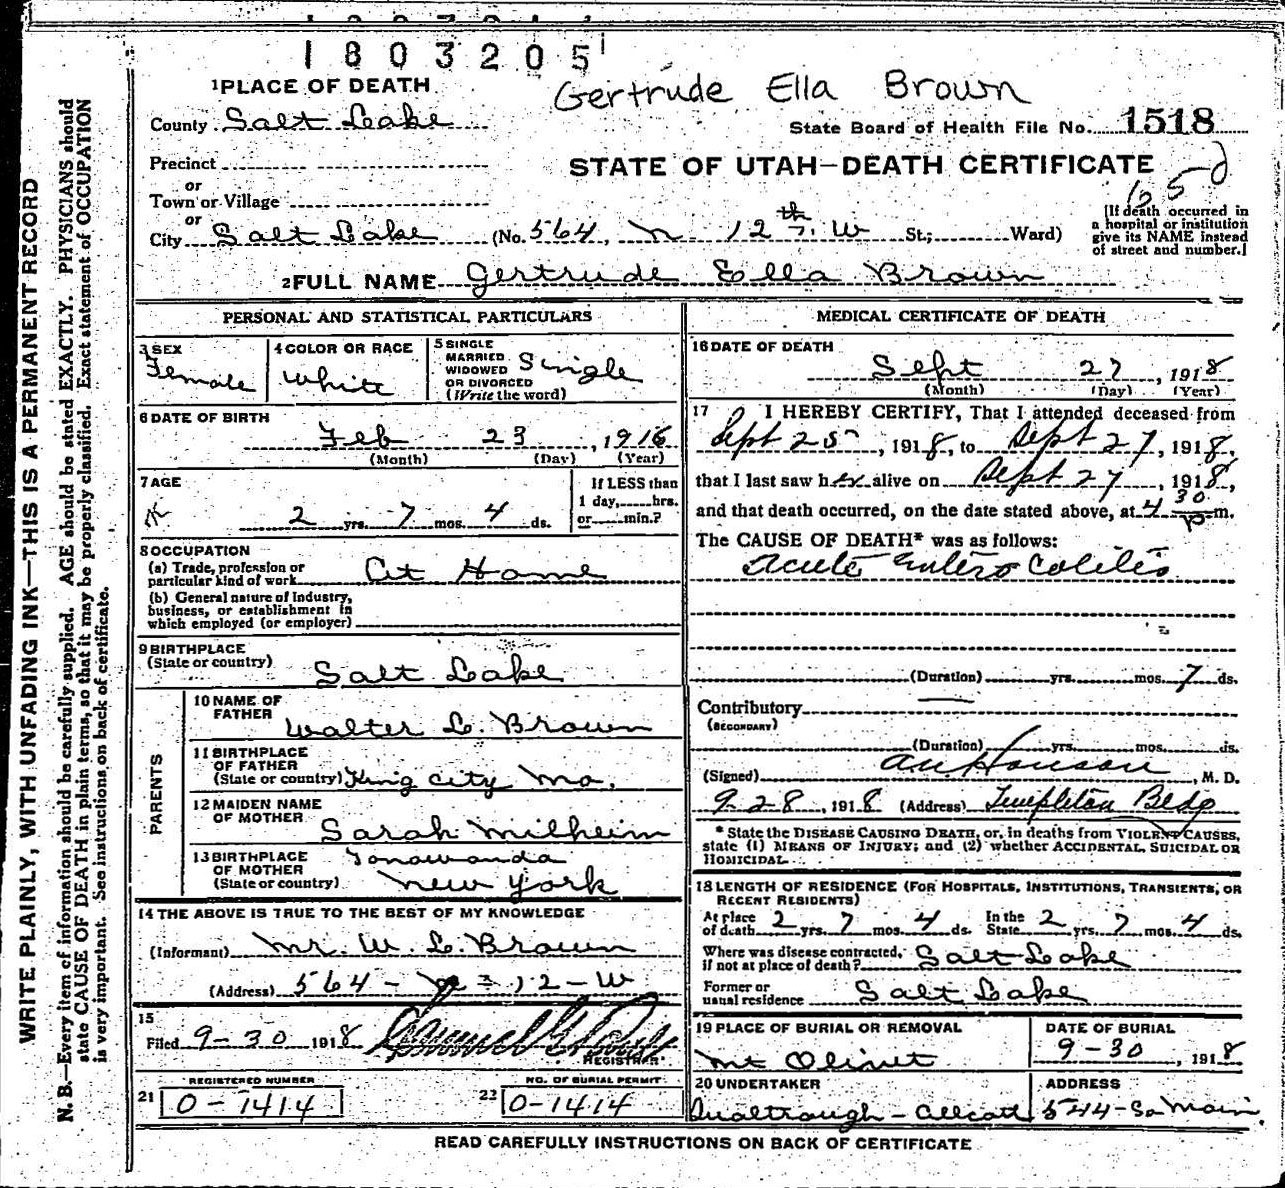 1803205
Gertrude Ella Brown
1 PLACE OF DEATH
County Salt Lake
State Board of Health File No. 1518
Precinct
STATE OF UTAH—DEATH CERTIFICATE
or
Town or Village
or
City Salt Lake (No. 564, N. 12th W St.; Ward)
[If death occurred in
a hospital or institution
give its NAME instead
of street and number.]
2 FULL NAME Gertrude Ella Brown
PERSONAL AND STATISTICAL PARTICULARS
3 SEX Female
4 COLOR OR RACE White
5 SINGLE MARRIED WIDOWED OR DIVORCED (Write the word) Single
6 DATE OF BIRTH
Feb 23, 1916
(Month) (Day) (Year)
7 AGE
2 yrs. 7 mos. 4 ds.
If LESS than
1 day, hrs.
or min.?
8 OCCUPATION
(a) Trade, profession or
particular kind of work At Home
(b) General nature of Industry,
business, or establishment in
which employed (or employer)
9 BIRTHPLACE
(State or country) Salt Lake
PARENTS
10 NAME OF
FATHER Walter L. Brown
11 BIRTHPLACE
OF FATHER
(State or country) King City Mo.
12 MAIDEN NAME
OF MOTHER Sarah Milheim
13 BIRTHPLACE
OF MOTHER Tonawanda
(State or country) New York
14 THE ABOVE IS TRUE TO THE BEST OF MY KNOWLEDGE
(Informant) Mr. W. L. Brown
(Address) 564 - 12 - W
15
Filed 9-30 1918
REGISTRAR
REGISTERED NUMBER
21 0-1414
NO. OF BURIAL PERMIT
22 0-1414
MEDICAL CERTIFICATE OF DEATH
16 DATE OF DEATH
Sept 27, 1918
(Month) (Day) (Year)
17 I HEREBY CERTIFY, That I attended deceased from
Sept 25, 1918, to Sept 27, 1918,
that I last saw her alive on Sept 27, 1918,
and that death occurred, on the date stated above, at 4 30 p m.
The CAUSE OF DEATH* was as follows:
Acute Entero Colitis
(Duration) yrs. mos. 7 ds.
Contributory —
(SECONDARY)
(Duration) yrs. mos. ds.
(Signed) M. D.
9-28, 1918 (Address) Templeton Bldg
* State the DISEASE CAUSING DEATH, or, in deaths from VIOLENT CAUSES,
state (1) MEANS OF INJURY; and (2) whether ACCIDENTAL, SUICIDAL OR
HOMICIDAL.
18 LENGTH OF RESIDENCE (FOR HOSPITALS, INSTITUTIONS, TRANSIENTS, OR
RECENT RESIDENTS)
At place of death 2 yrs. 7 mos. 4 ds. In the State 2 yrs. 7 mos. 4 ds.
Where was disease contracted,
if not at place of death? Salt Lake
Former or
usual residence Salt Lake
19 PLACE OF BURIAL OR REMOVAL
Mt Olivet
DATE OF BURIAL
9-30, 1918
20 UNDERTAKER
Qualtrough - Allcott
ADDRESS
544-So Main
READ CAREFULLY INSTRUCTIONS ON BACK OF CERTIFICATE
WRITE PLAINLY, WITH UNFADING INK—THIS IS A PERMANENT RECORD
N. B.—Every item of information should be carefully supplied. AGE should be stated EXACTLY. PHYSICIANS should
state CAUSE OF DEATH in plain terms, so that it may be properly classified. Exact statement of OCCUPATION
is very important. See instructions on back of certificate.